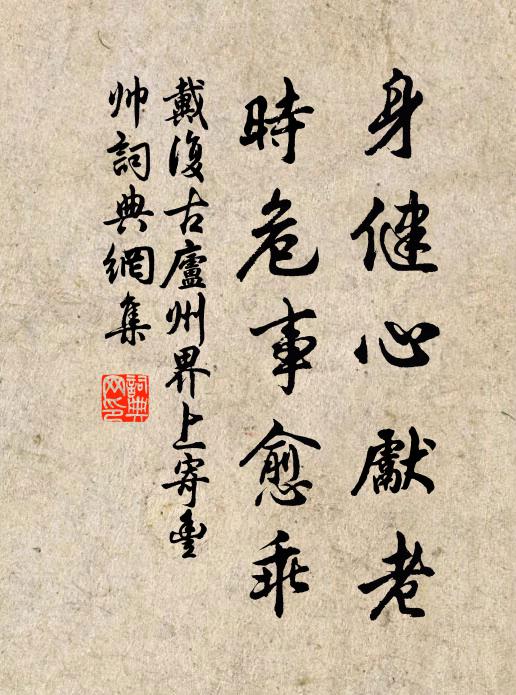 身健心獻老
時危事愈乖
戴復古廬州界上寄豐
帅詞典網集
詞典网印